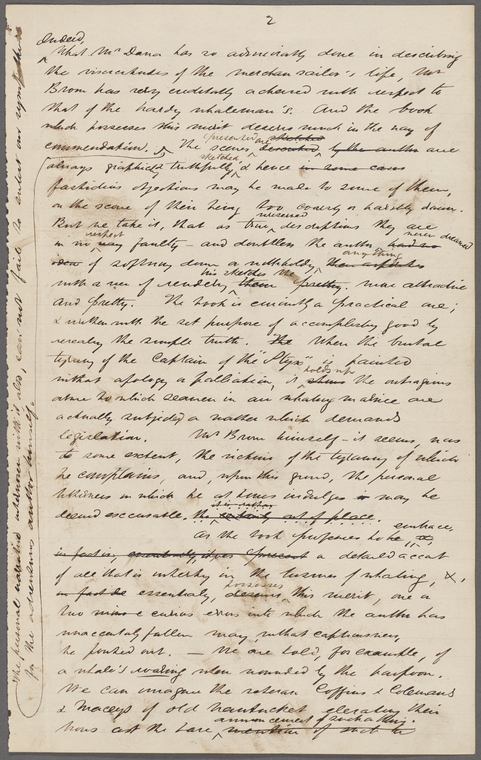 2
Indeed,
What Mr Dana has so admirably done in describing
the vicissitudes of the merchant sailor's life, Mr
Brown has very creditably achieved with respect to
that of the hardy whaleman's. And the book
which possesses this merit deserves much in the way of
presented are sketched
commendation. The scenes described by the author are
sketched
always graphically & truthfully & hence in some cases
fastidious objections may be made to some of them,
on the score of their being too coarsely or harshly drawn.
unreserved
But we take it, that as true descriptions they are
respect never dreamed
in no way faulty — and doubtless the author had no
any thing
idea of softening down or withholding
his sketches the
with a view of rendering them pretty. more attractive
and pretty. The book is eminently a practical one;
& written with the set purpose of accomplishing good by
revealing the simple truth. The When the brutal
tyranny of the Captain of the "Styx" is painted
holds up
without apology or palliation, it shows the outrageous
abuse to which seamen in our whaling marine are
actually subjected a matter which demands
legislation. Mr Brown himself — it seems, was
to some extent, the victim of the tyranny of which
he complains, and, upon this ground, the personal
bitterness in which he at times indulges is may be
it is rather
deemed excusable, tho' certainly out of place.
embrace,
As the book professes to be,
in fact is, essentially, a detailed account
of all that is interesting in the business of whaling, &,
possesses
in fact do essentially, deserves this merit, one or
two curious errors into which the author has
unaccountably fallen may without captiousness,
be pointed out. — We are told, for example, of
a whale's roaring when wounded by the harpoon.
We can imagine the veteran Coffins & Colemans
& Maceys of old Nantucket elevating their
announcement of such a thing.
brows at the bare mention of such
The personal narrative interwoven with it also, can not fail to enlist our sympathies
for the adventurous author himself.